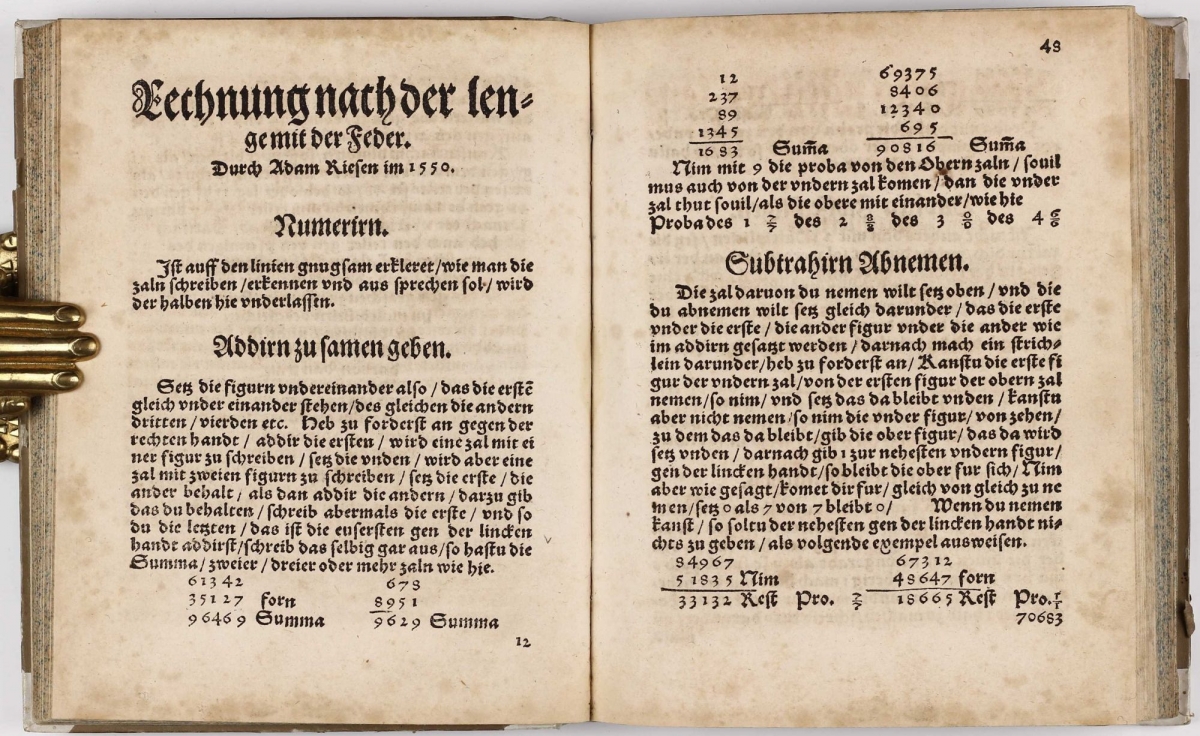 Rechnung nach der len-
ge mit der Feder.
Durch Adam Riesen im 1550.
Numerirn.
Jst auff den linien gnugsam erkleret/wie man die
zaln schreiben/erkennen vnd aus sprechen sol/ wird
der halben hie vnderlassen.
Addirn zu samen geben.
Setz die figurn vndereinander also / das die erstē
gleich vnder einander stehen/des gleichen die andern
dritten/vierden etc. Heb zu forderst an gegen der
rechten handt / addir die ersten / wird eine zal mit ei
ner figur zu schreiben / setz die vnden / wird aber eine
zal mit zweien figurn zu schreiben / setz die erste / die
ander behalt / als dan addir die andern / darzu gib
das du behalten/ schreib abermals die erste / vnd so
du die letzten / das ist die eusersten gen der lincken
handt addirst/schreib das selbig gar aus/so hastu die
Summa/zweier / dreier oder mehr zaln wie hie.
61342 678
35127 forn 8951
96469 Summa 9629 Summa
12
48
12 69375
237 8406
89 12340
1345 695
1683 Sum̄a 90816 Sum̄a
Nim mit 9 die proba von den Obern zaln / souil
mus auch von der vndern zal komen / dan die vnder
zal thut souil/als die obere mit einander/wie hie
Proba des 1 7/7 des 2 8/8 des 3 0/0 des 4 6/6
Subtrahirn Abnemen.
Die zal daruon du nemen wilt setz oben / vnd die
du abnemen wilt setz gleich darunder / das die erste
vnder die erste / die ander figur vnder die ander wie
im addirn gesatzt werden / darnach mach ein strich-
lein darunder/heb zu forderst an/ Kanstu die erste fi
gur der vndern zal/von der ersten figur der obern zal
nemen/so nim/ vnd setz das da bleibt vnden / kanstu
aber nicht nemen/so nim die vnder figur/ von zehen/
zu dem das da bleibt/gib die ober figur/das da wird
setz vnden / darnach gib 1 zur nehesten vndern figur/
gen der lincken handt/so bleibt die ober fur sich/Nim
aber wie gesagt/komet dir fur/gleich von gleich zu ne
men/setz 0 als 7 von 7 bleibt 0/ Wenn du nemen
kanst / so soltu der nehesten gen der lincken handt ni-
chts zu geben / als volgende exempel ausweisen.
84967 67312
51835 Nim 48647 forn
33132 Rest Pro. 7/7 18665 Rest Pro. 1/1
70683